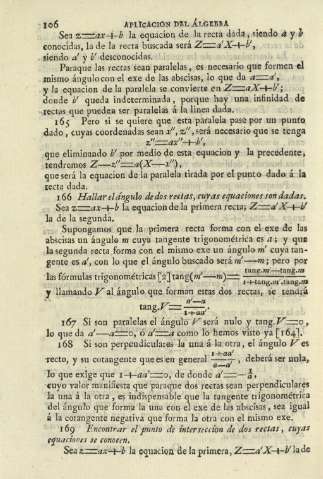 106 APLICACION DEL ÁLGEBRA
Sea z=ax+b la equacion de la recta dada, siendo a y b
conocidas, la de la recta buscada será Z=a'X+b',
siendo a' y b' desconocidas.
Paraque las rectas sean paralelas, es necesario que formen el
mismo ángulo con el exe de las abscisas, lo que da a=a',
y la equacion de la paralela se convierte en Z=aX+b';
donde b' queda indeterminada, porque hay una infinidad de
rectas que pueden ser paralelas á la línea dada.
165 Pero si se quiere que esta paralela pase por un punto
dado, cuyas coordenadas sean x'', z'', será necesario que se tenga
z''=ax''+b',
que eliminando b' por medio de esta equacion y la precedente,
tendremos Z—z''=a(X—x''),
que será la equacion de la paralela tirada por el punto dado á la
recta dada.
166 Hallar el ángulo de dos rectas, cuyas equaciones son dadas.
Sea z=ax+b la equacion de la primera recta; Z=a'X+b'
la de la segunda.
Supongamos que la primera recta forma con el exe de las
abscisas un ángulo m cuya tangente trigonométrica es a; y que
la segunda recta forma con el mismo exe un ángulo m' cuya tan-
gente es a', con lo que el ángulo buscado será m'—m; pero por
las fórmulas trigonométricas [2] tang(m'—m)= tang.m'—tang.m
1+tang.m'.tang.m
y llamando V al ángulo que forman estas dos rectas, se tendrá
tang.V= a'—a
1+aa'
167 Si son paralelas el ángulo V será nulo y tang.V=0,
lo que da a'—a=0, ó a'=a como lo hemos visto ya [164].
168 Si son perpendiculares la una á la otra, el ángulo V es
recto, y su cotangente que es en general 1+aa'
a'—a , deberá ser nula,
lo que exige que 1+aa'=0, de donde a'=—1/a,
cuyo valor manifiesta que paraque dos rectas sean perpendiculares
la una á la otra, es indispensable que la tangente trigonométrica
del ángulo que forma la una con el exe de las abscisas, sea igual
á la cotangente negativa que forma la otra con el mismo exe.
169 Encontrar el punto de interseccion de dos rectas, cuyas
equaciones se conocen.
Sea z=ax+b la equacion de la primera, Z=a'X+b' la de